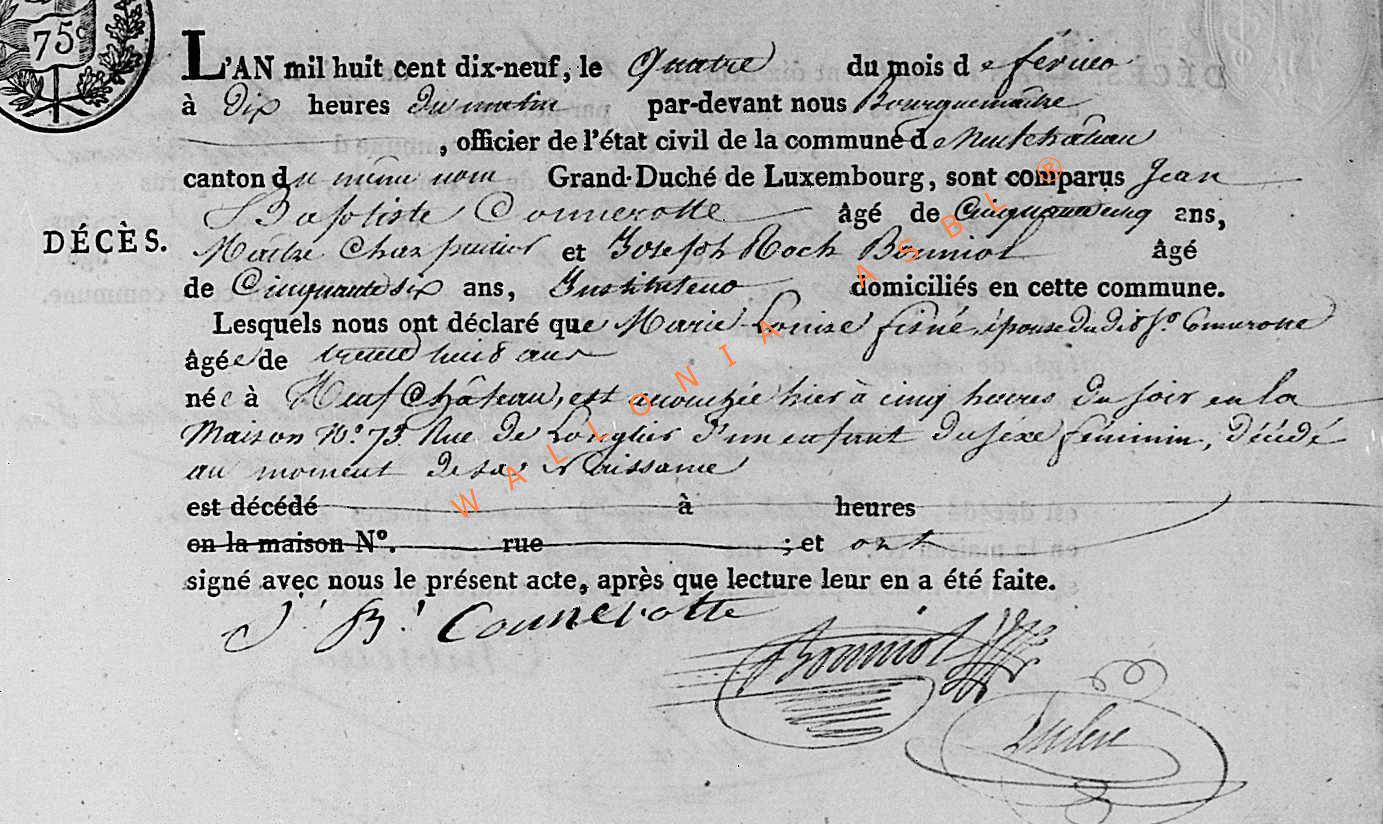 75c
L'AN mil huit cent dix-neuf, le quatre du mois de février
à dix heures du matin par-devant nous Bourguemaitre
, officier de l'état civil de la commune de Neufchateau
canton du même nom Grand-Duché de Luxembourg, sont comparus Jean
Baptiste Connerotte âgé de Cinquante cinq ans,
DÉCÈS.
Maitre Charpentier et Joseph Roch Bonniol âgé
de Cinquante six ans, Instituteur domiciliés en cette commune.
Lesquels nous ont déclaré que Marie Louise épouse du dit Sr. Connerotte
âgée de trente huit ans
née à Neufchâteau, est accouchée hier à cinq heures du soir en la
Maison No. 73. Rue de Longlier d'un enfant du sexe féminin, décédé
au moment de sa Naissance
est décédé à heures
en la maison No. rue ; et ont
signé avec nous le présent acte, après que lecture leur en a été faite.
J. B. Connerotte
Bonniol
WALLONIA ASBL ®